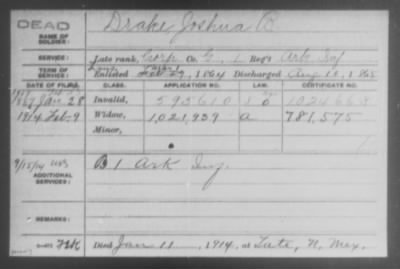 DEAD
NAME OF SOLDIER: Drake Joshua B
SERVICE: Late rank, Corp Co. G, 1 Reg't Ark Inf
TERM OF SERVICE: Enlisted 1864 Discharged Aug 10, 1865
DATE OF FILING. CLASS. APPLICATION NO. LAW. CERTIFICATE NO.
Jan 28 Invalid, 595610
1914 Feb 9 Widow, 1,021,939 a 781,575
Minor,
ADDITIONAL SERVICES: B 1 Ark Inf.
REMARKS:
Died Jan 11, 1914, at N. Mex.